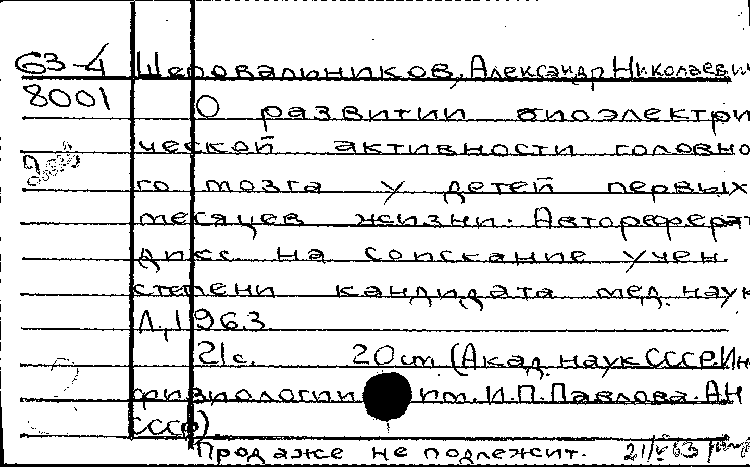 63-4 Шеповальников, Александр Николаевич
8001 О развитии биоэлектри
ческой активности головно
го мозга у детей первых
месяцев жизни. Автореферат
дисс. на соискание учен.
степени кандидата мед. наук
Л., 1963.
21с. 20 см (Акад. наук СССР. Ин
физиологии им. И.П. Павлова. АН
СССР)
Продаже не подлежит. 21/V 63